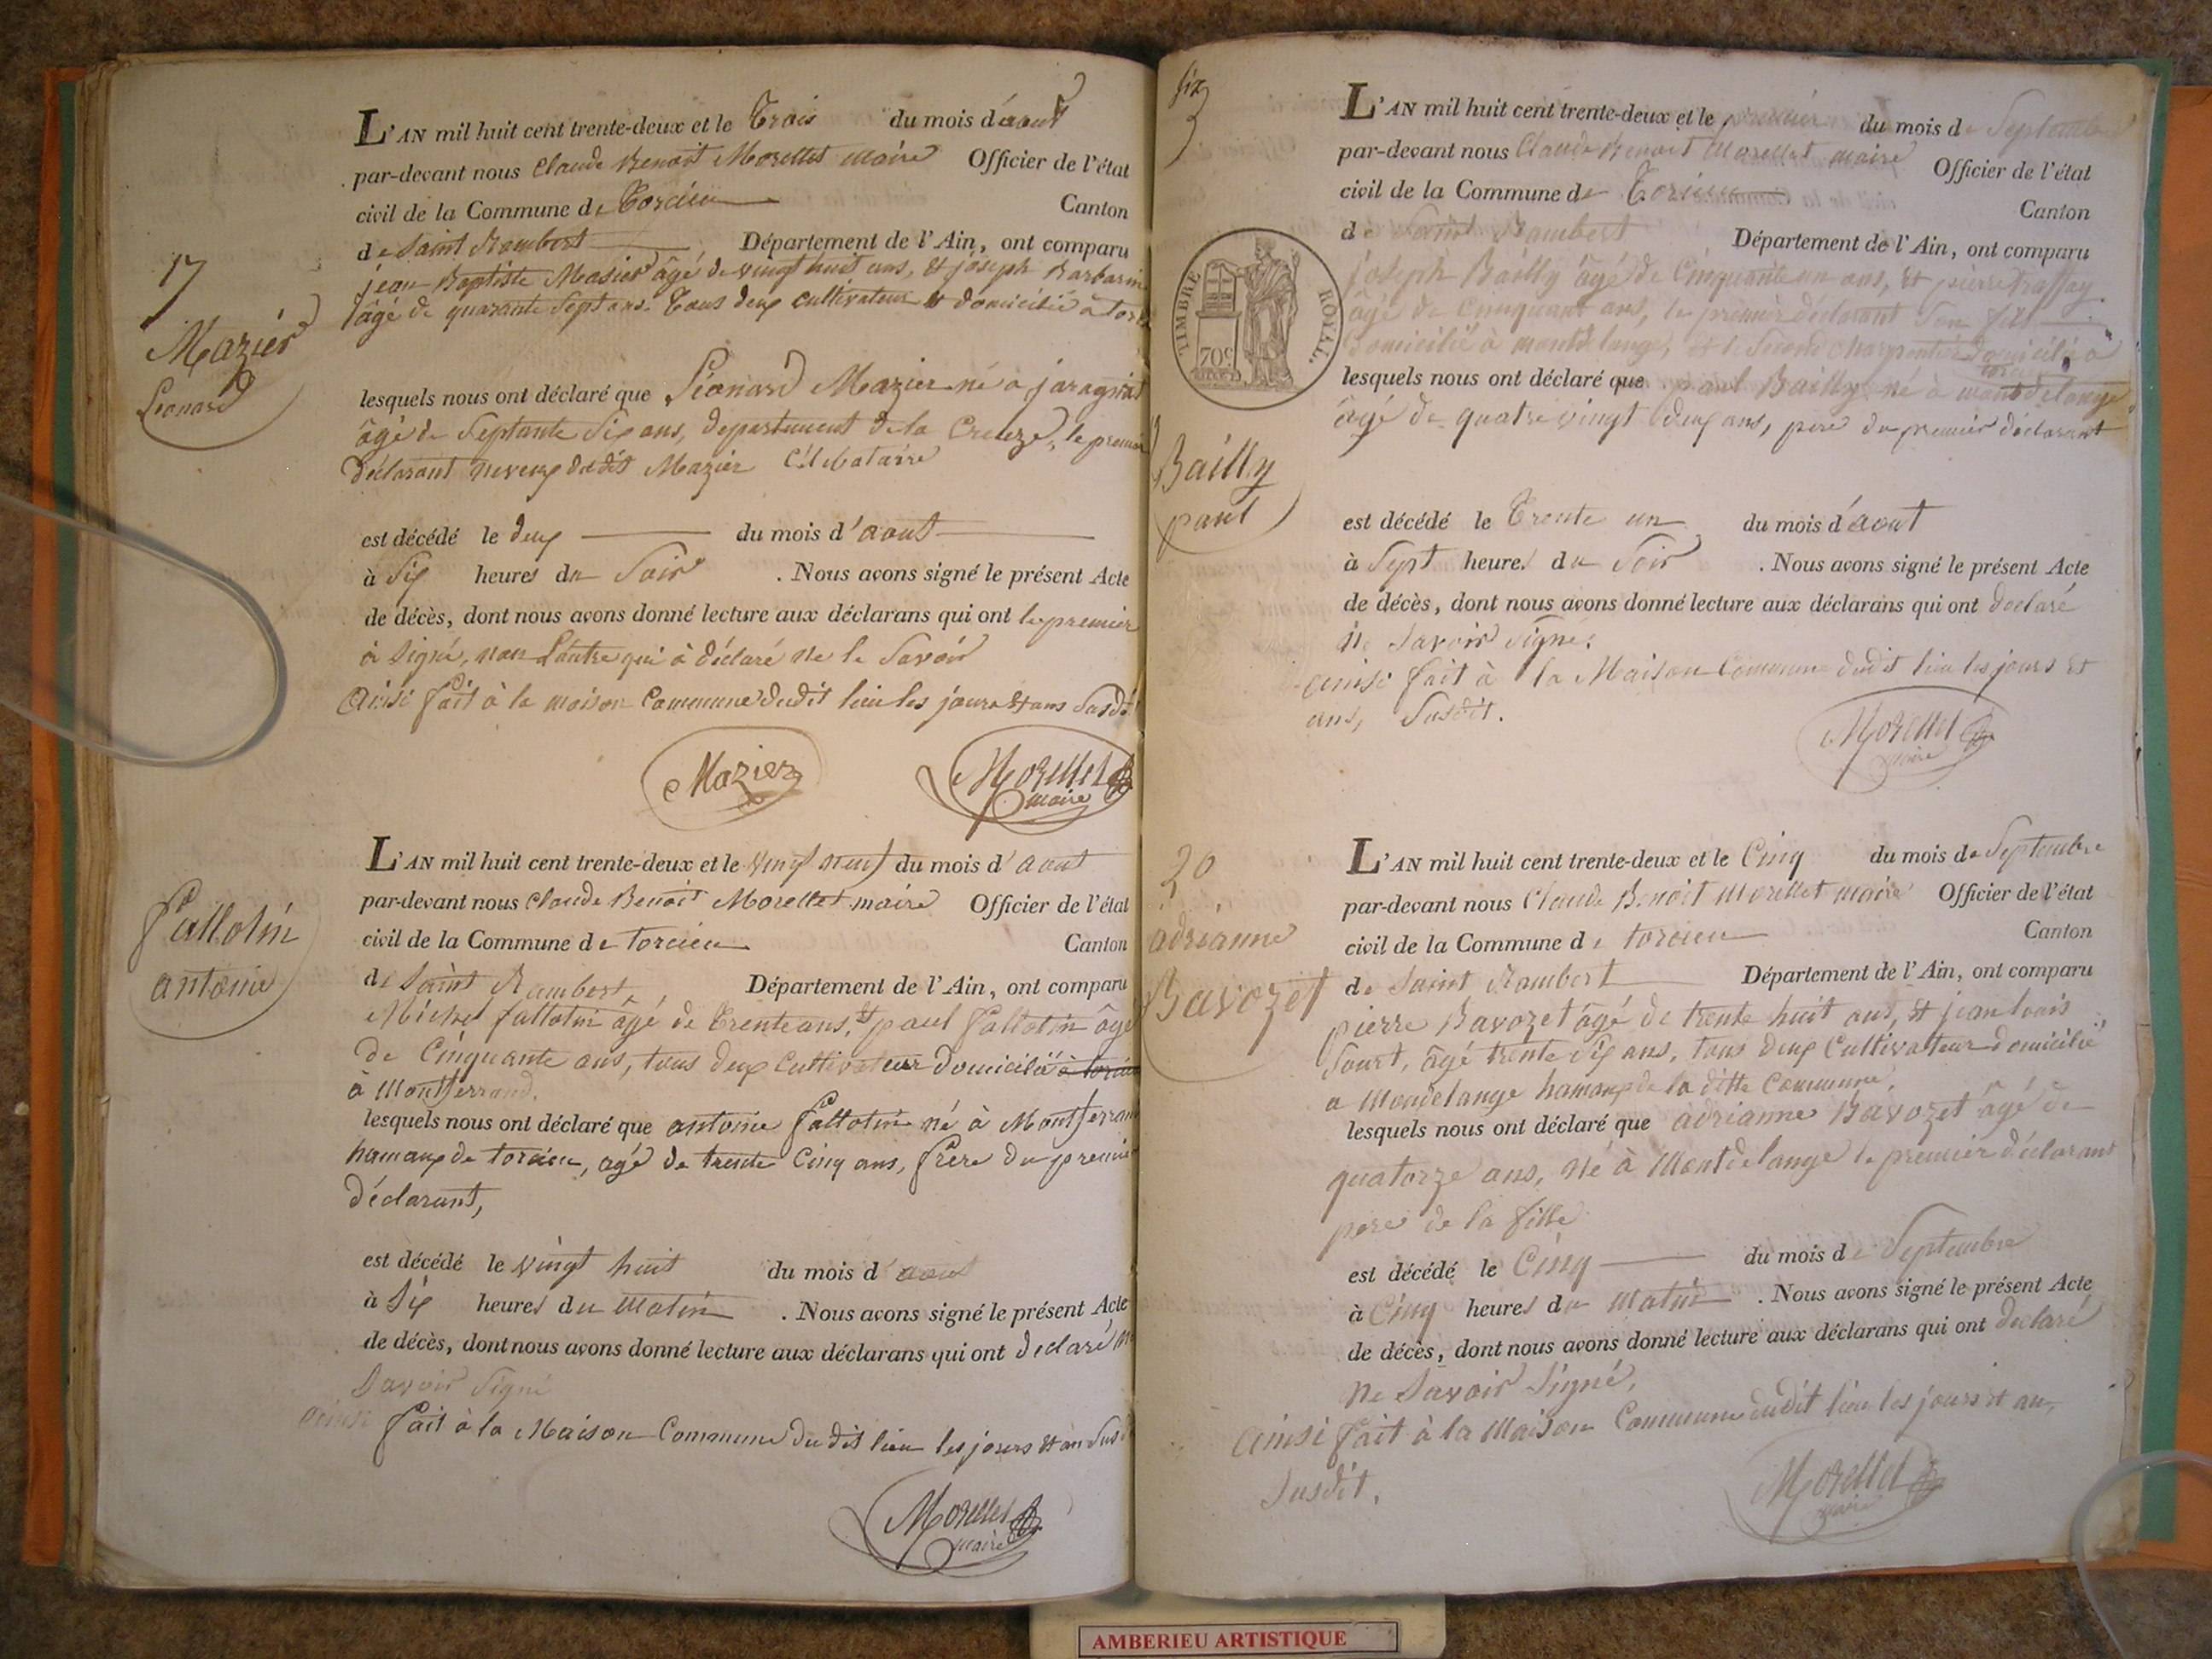 17
Mazier
Léonard
L'AN mil huit cent trente-deux et le Trois du mois d'aout
par-devant nous Claude Benoit Morellet maire Officier de l'état
civil de la Commune de Torcieu Canton
de Saint Rambert Département de l'Ain, ont comparu
jean Baptiste Masier âgé de vingt huit ans, et joseph Barbarin
âgé de quarante Sept ans. Tous deux cultivateur et domicilié à
lesquels nous ont déclaré que Léonard Mazier né a
âgé de Septante Six ans, departement de la Creuze, le premier
déclarant neveux dudit Mazier Célibataire
est décédé le deux du mois d'aout
à Six heures du Soir . Nous avons signé le présent Acte
de décès, dont nous avons donné lecture aux déclarans qui ont le premier
à Signé, non l'autre qui à déclaré ne le Savoir
Ainsi fait à la maison Commune dudit lieu les jours et ans Susdit
Mazier
Morellet
maire
fallotin
antoine
L'AN mil huit cent trente-deux et le vingt neuf du mois d'aout
par-devant nous Claude Benoit Morellet maire Officier de l'état
civil de la Commune de torcieu Canton
de Saint Rambert Département de l'Ain, ont comparu
Michel fallotin âgé de Trente ans, et paul fallotin âgé
de Cinquante ans, tous deux Cultivateur Domicilié à torcieu
à Montferrand.
lesquels nous ont déclaré que antoine fallotin né à Montferrand
hamaux de torcieu, agé de trente Cinq ans, frère du premier
déclarant,
est décédé le vingt huit du mois d'aout
à Six heures du matin . Nous avons signé le présent Acte
de décès, dont nous avons donné lecture aux déclarans qui ont déclaré ne
Savoir Signé
ainsi fait à la Maison Commune du dit lieu les jours et an Susdit
Morellet
maire
six
TIMBRE ROYAL.
70c
Bailly
paul
L'AN mil huit cent trente-deux et le premier du mois de Septembre
par-devant nous Claude Benoit Morellet maire Officier de l'état
civil de la Commune de Torcieu Canton
de Saint Rambert Département de l'Ain, ont comparu
joseph Bailly âgé de Cinquante un ans, et pierre
âgé de Cinquante ans, le premier déclarant Son fils
Domicilié à montdelange, et le Second charpentier domicilié à
lesquels nous ont déclaré que paul Bailly né à montdelange
âgé de quatre vingt deux ans, père du premier déclarant
est décédé le Trente un du mois d'aout
à Sept heures du Soir . Nous avons signé le présent Acte
de décès, dont nous avons donné lecture aux déclarans qui ont déclaré
ne Savoir Signé.
ainsi fait à la Maison Commune dudit lieu les jours et
ans, Susdit.
Morellet
maire
20
adrianne
Bavozet
L'AN mil huit cent trente-deux et le Cinq du mois de Septembre
par-devant nous Claude Benoit Morellet maire Officier de l'état
civil de la Commune de torcieu Canton
de Saint Rambert Département de l'Ain, ont comparu
pierre Bavozet âgé de trente huit ans, et jean louis
Sourt, âgé trente Six ans, tous deux Cultivateur domicilié
a Mondelange hamaux de la ditte Commune,
lesquels nous ont déclaré que adrianne Bavozet âgé de
quatorze ans, né à Montdelange le premier déclarant
père de la fille
est décédé le Cinq du mois de Septembre
à Cinq heures du matin . Nous avons signé le présent Acte
de décès, dont nous avons donné lecture aux déclarans qui ont déclaré
ne Savoir Signé,
Ainsi fait à la Maison Commune dudit lieu les jours et an,
Susdit.
Morellet
maire
AMBERIEU ARTISTIQUE